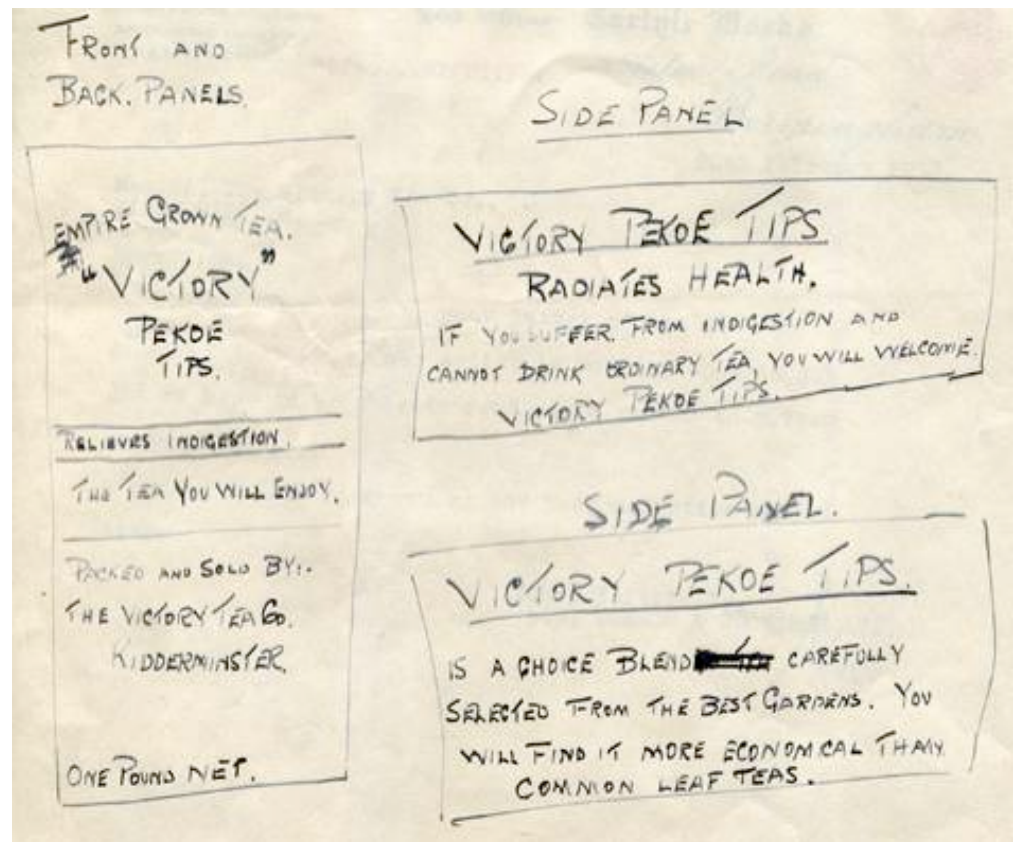 FRONT AND
BACK. PANELS.
EMPIRE GROWN TEA.
"VICTORY"
PEKOE
TIPS.
RELIEVES INDIGESTION.
THE TEA YOU WILL ENJOY.
PACKED AND SOLD BY:.
THE VICTORY TEA Co.
KIDDERMINSTER.
ONE POUND NET.
SIDE PANEL
VICTORY PEKOE TIPS
RADIATES HEALTH.
IF YOU SUFFER. FROM INDIGESTION AND
CANNOT DRINK ORDINARY TEA, YOU WILL WELCOME.
VICTORY PEKOE TIPS.
SIDE PANEL.
VICTORY PEKOE TIPS.
IS A CHOICE BLEND CAREFULLY
SELECTED FROM THE BEST GARDENS. YOU
WILL FIND IT MORE ECONOMICAL THAN
COMMON LEAF TEAS.